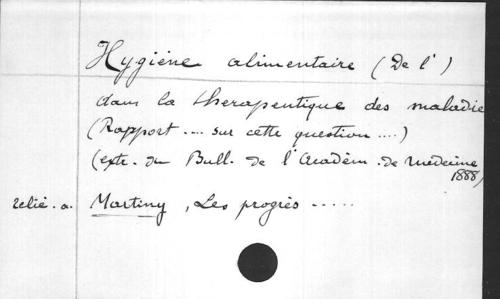 Hygiène alimentaire (De l')
dans la therapeutique des maladie
(Rapport .... sur cette question ....)
(extr. du Bull. de l'Académ. de medecine
1888)
relié. a. Martiny, Les progrès .....